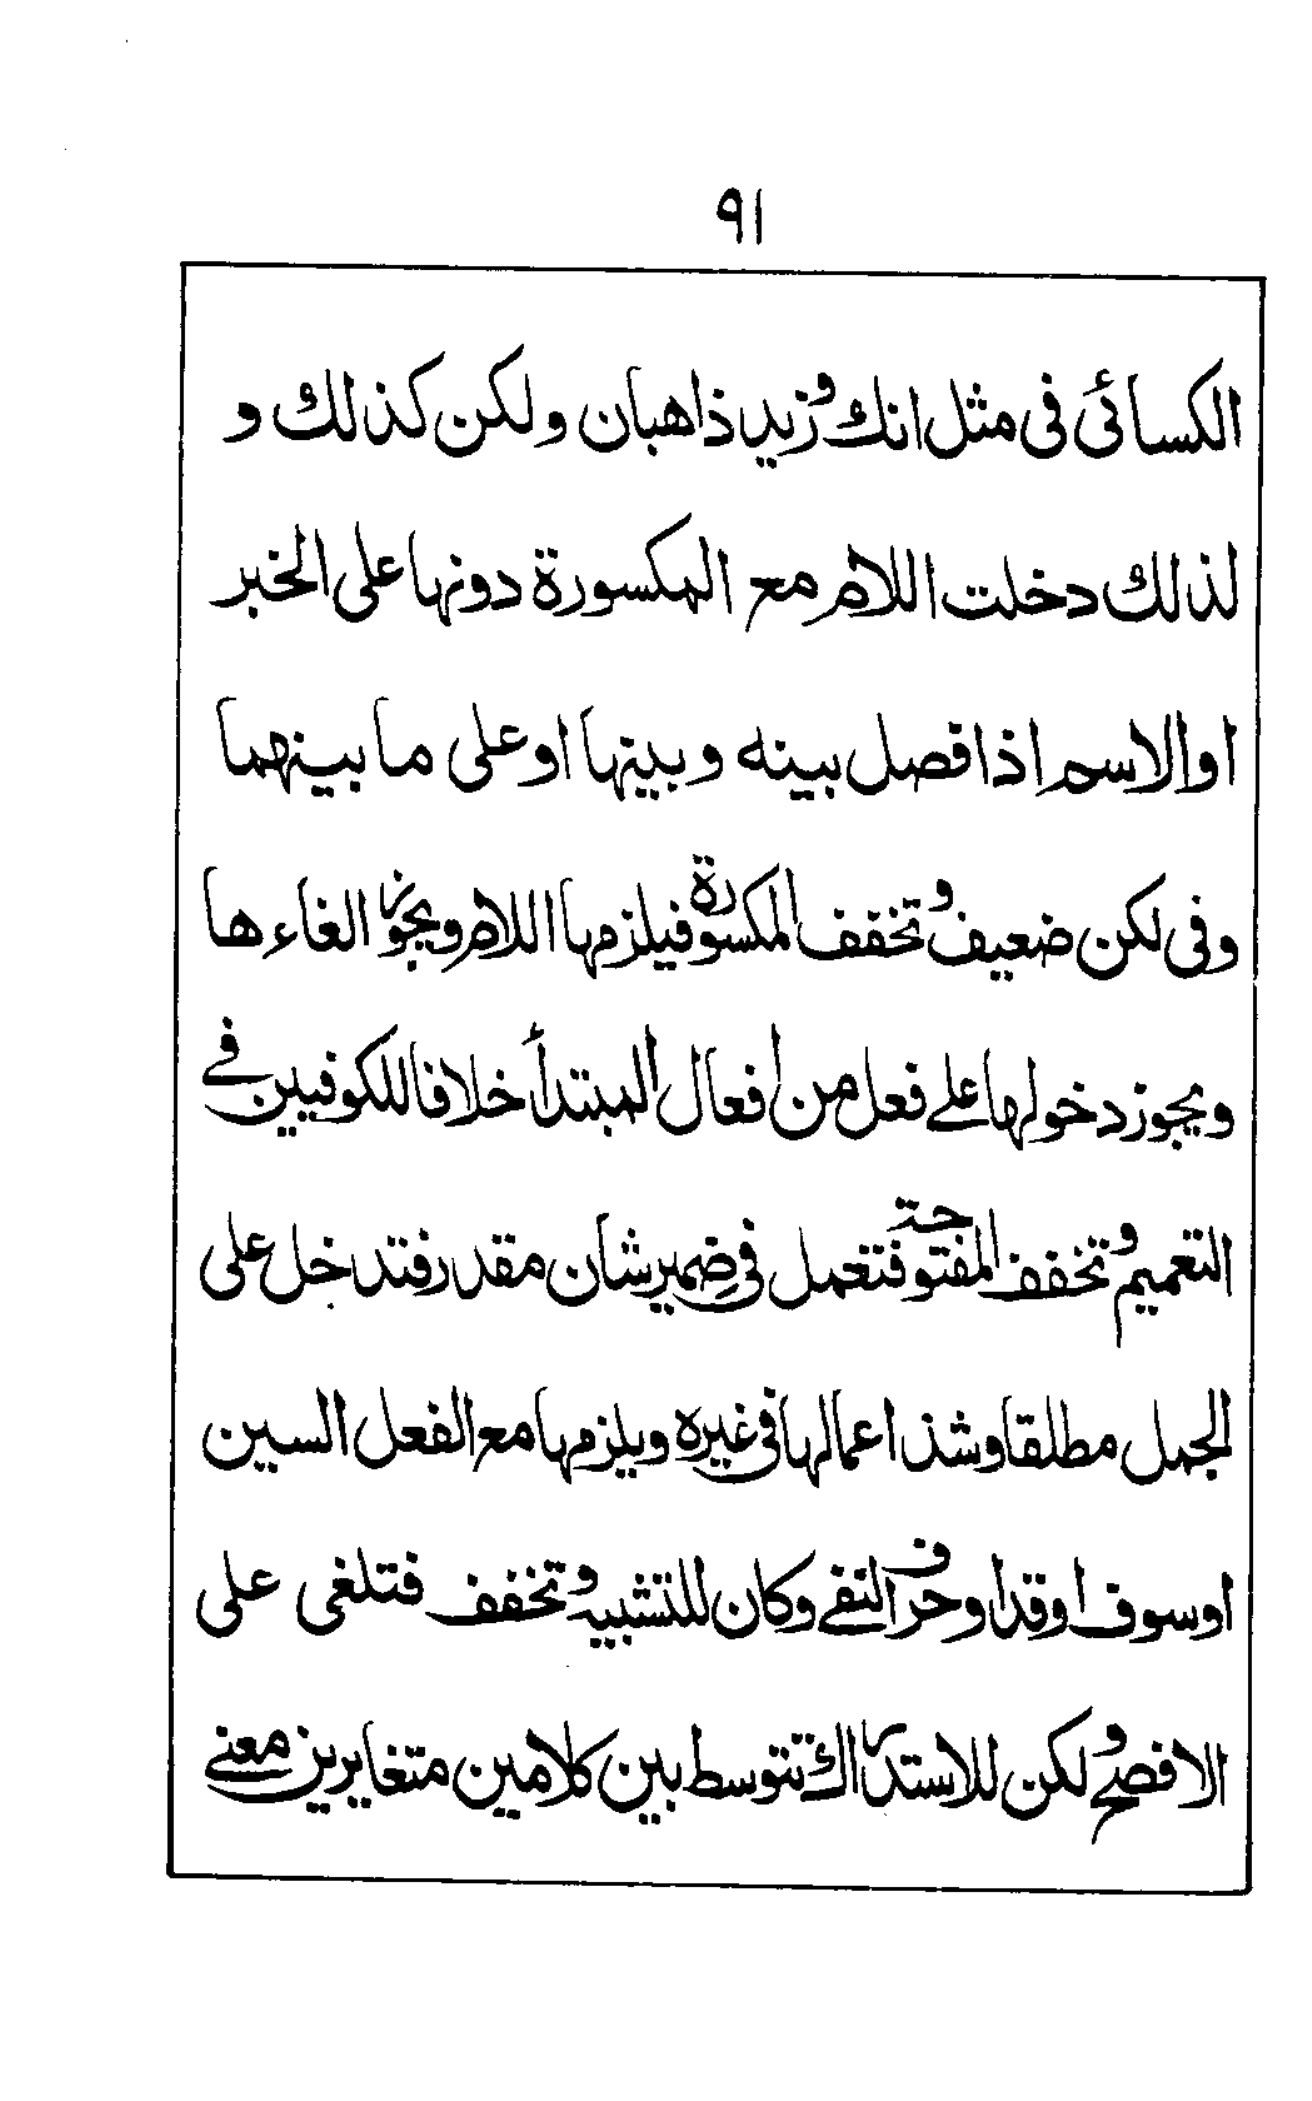 ٩١
الكسائي في مثل انك وزيد ذاهبان ولكن كذلك و
لذلك دخلت اللام مع المكسورة دونها على الخبر
او الاسم اذا فصل بينه وبينها او على ما بينهما
وفي لكن ضعيف وتخفف المكسورة فيلزمها اللام ويجوز الغاءها
ويجوز دخولها على فعل من أفعال المبتدأ خلافا للكوفيين في
التعميم وتخفف المفتوحة فتعمل في ضمير شأن مقدر فتدخل على
الجمل مطلقا وشذ اعمالها في غيره ويلزمها مع الفعل السين
او سوف او قد او حرف النفي وكان للتشبيه وتخفف فتلغى على
الافصح ولكن للاستدراك تتوسط بين كلامين متغايرين معنى